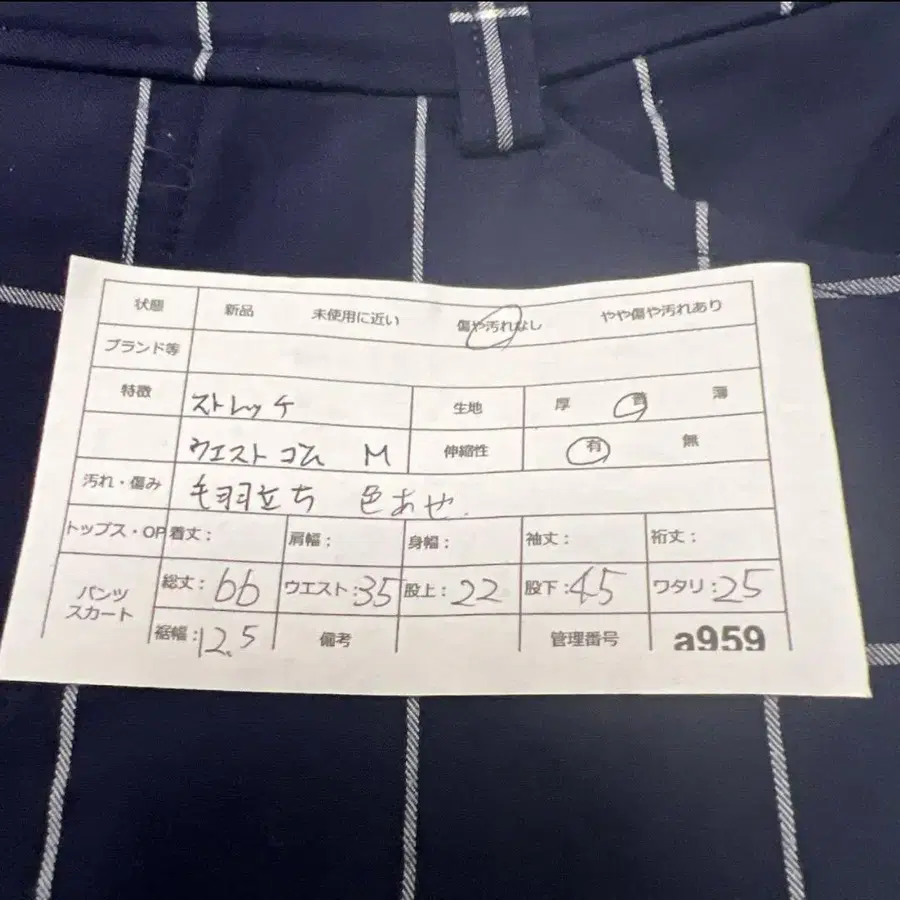 状態 新品 未使用に近い 傷や汚れなし やや傷や汚れあり
ブランド等
特徴 ストレッチ 生地 厚 普 薄
ウエストゴム M 伸縮性 有 無
汚れ・傷み 毛羽立ち 色あせ
トップス・OP 着丈： 肩幅： 身幅： 袖丈： 裄丈：
パンツ スカート 総丈：66 ウエスト：35 股上：22 股下：45 ワタリ：25
裾幅：12.5 備考 管理番号 a959